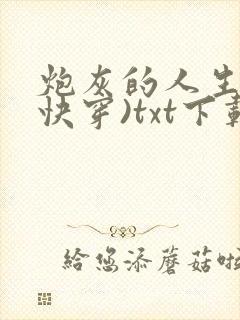 炮灰的人生
快穿)txt下载
给您添蘑菇啦